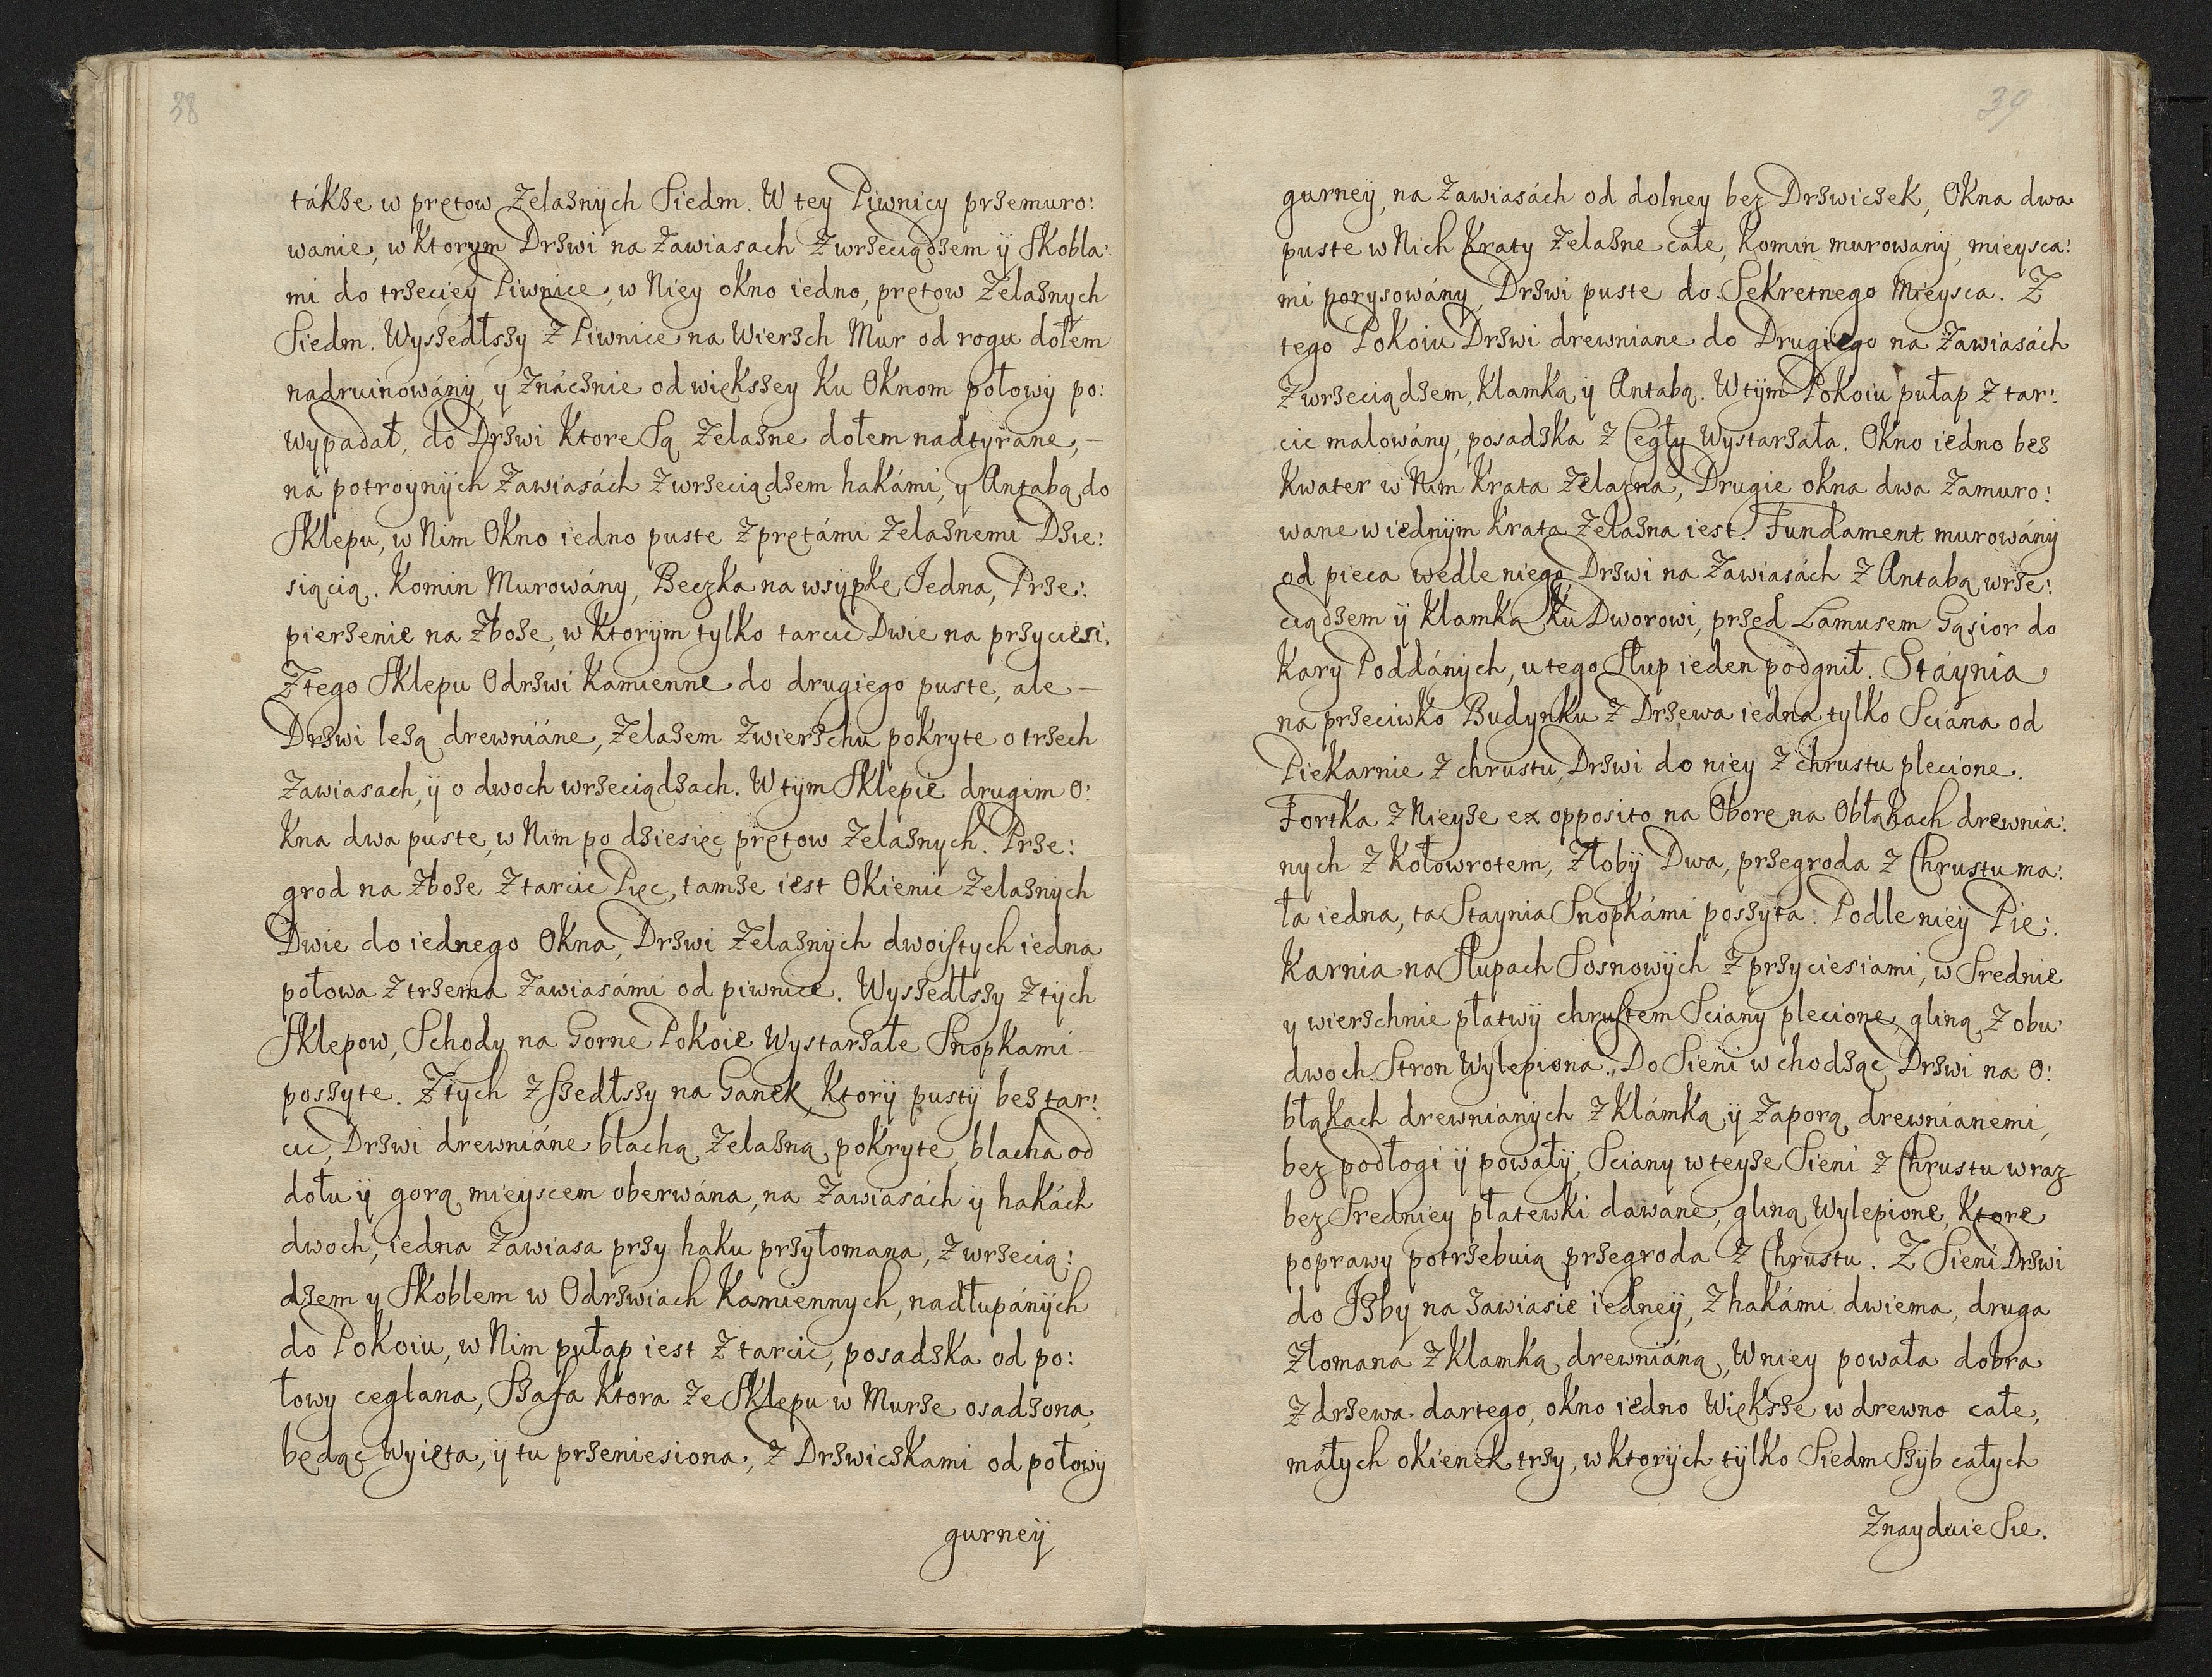 38
tákże w prętow Zelaznych Siedm. W tey Piwnicy przemuro:
wanie, w Ktorym Drzwi na Zawiasach Z wrzeciądzem ÿ Skobla:
mi do trzeciey Piwnice, w Niey okno iedno, prętow Zelaznych
Siedm. Wyszedłszy Z Piwnice na Wierzch Mur od rogu dołem
nadruinowány, y Znácznie od większey Ku Oknom połowy po:
wypadał, do Drzwi Ktore Są Zelazne dołem nadtyrane, –
na potroynÿch Zawiasách Z wrzeciądzem hakámi, y Antabą do
Sklepu, w Nim Okno iedno puste Z prętámi Zelaznemi Dzie:
siącią. Komin Murowány, Beczka na wsÿpkę Jedna, Prze:
pierzenie na Zboże, w Ktorÿm tylko tarcic Dwie na przyciesi.
Z tego Sklepu Odrzwi Kamienne do drugiego puste, ale –
Drzwi leżą drewniáne, Zelazem Zwierzchu pokryte o trzech
Zawiasach, ÿ o dwoch wrzeciądzach. W tÿm Sklepie drugim O:
Kna dwa puste, w Nim po dziesięć prętow Zelaznych. Prze:
grod na Zboże Z tarcic Pięć, tamże iest Okienic Zelaznych
Dwie do iednego Okna, Drzwi Zelaznych dwoistych iedna
połowa Z trzema Zawiasámi od piwnice. Wyszedłszy Z tÿch
Sklepow, Schody na Gorne Pokoie Wystarzałe Snopkami –
poszyte. Z tych Zszedłszy na Ganek, Ktorÿ pustÿ bez tar:
cic, Drzwi drewniáne blachą Zelazną pokryte, blacha od
dołu ÿ gorą mieyscem oberwána, na Zawiasách ÿ hakách
dwoch, iedna Zawiasa przy haku przyłomana, Z wrzecią:
dzem y Skoblem w Odrzwiach Kamiennych, nadłupánÿch
do Pokoiu, w Nim pułap iest Z tarcic, posadzka od po:
łowy ceglana, Szafa Ktora Ze Sklepu w Murze osadzona,
będąc Wyięta, ÿ tu przeniesiona, Z Drzwiczkami od połowÿ
gurneÿ
39
gurneÿ, na Zawiasách od dolney bez Drzwiczek, Okna dwa
puste w Nich Kraty Zelazne całe, Komin murowanÿ, mieysca:
mi porysowány, Drzwi puste do Sekretnego Mieysca. Z
tego Pokoiu Drzwi drewniane do Drugiego na Zawiasách
Z wrzeciądzem, Klamką ÿ Antabą. W tÿm Pokoiu pułap Z tar:
cic malowány, posadzka Z Cegły Wystarzała. Okno iedno bez
Kwater w Nim Krata Zelazna, Drugie okna dwa Zamuro:
wane w iednÿm Krata Zelazna iest. Fundament murowánÿ
od pieca wedle niego, Drzwi na Zawiasách Z Antabą wrze:
ciądzem ÿ Klamką Ku Dworowi, przed Lamusem Gąsior do
Kary Poddánych, u tego Słup ieden podgnił. Stáynia
na przeciwko Budynku Z Drzewa iedna tylko Sciána od
Piekarnie Z chrustu, Drzwi do niey Z chrustu plecione.
Fortka Z Nieyże ex opposito na Oborę na Obłąkach drewnia:
nych Z Kołowrotem, Złobÿ Dwa, przegroda Z Chrustu ma:
ła iedna, ta Staynia Snopkámi poszyta. Podle nieÿ Pie:
Karnia na Słupach Sosnowÿch Z przyciesiami, w Srednie
y wierzchnie płatwÿ chrustem Sciany plecione, gliną Z obu:
dwoch Stron Wylepiona. Do Sieni wchodząc Drzwi na O:
błąkach drewnianych Z Klámką ÿ Zaporą drewnianemi,
bez podłogi ÿ powałÿ, Sciany w teyże Sieni Z Chrustu wraz
bez Sredniey płatewki dawane, gliną Wylepione, Ktore
poprawy potrzebuią przegroda Z Chrustu. Z Sieni Drzwi
do Izby na Zawiasie iedneÿ, Z hakámi dwiema, druga
Złomana Z Klamką drewniáną, W niey powała dobra
Z drzewa dartego, okno iedno Większe w drewno całe,
małych okienek trzy, w Ktorÿch tÿlko Siedm Szÿb całych
Znayduie Sie.